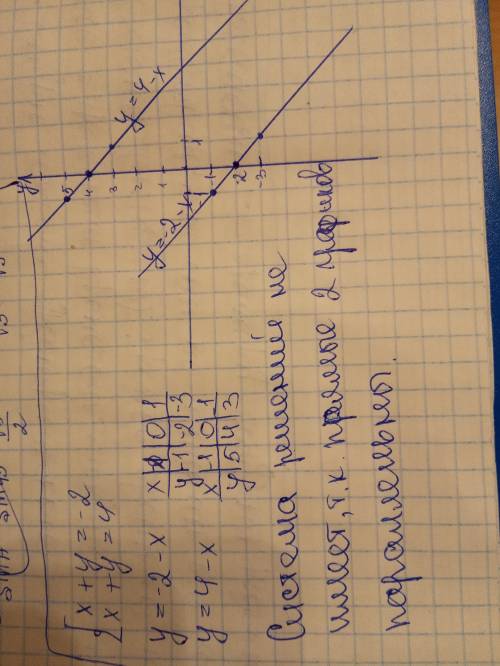 { x + y = -2
x + y = 4
y = -2 - x
x | -1 | 0 | 1
y | -1 | -2 | -3
y = 4 - x
x | -1 | 0 | 1
y | 5 | 4 | 3
Система решений не
имеет, т.к. прямые 2 графиков
параллельны.
y
5
4
3
2
1
1
-1
-2
-3
y = 4 - x
y = -2 - x